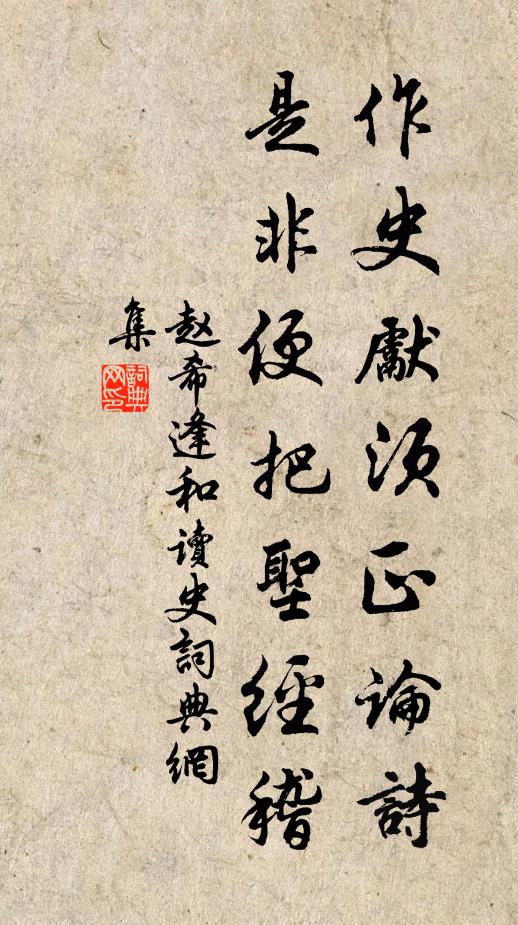 作史獻須正論詩
是非便把聖經稽
赵希逢和讀史詞典網
集
詞典網印